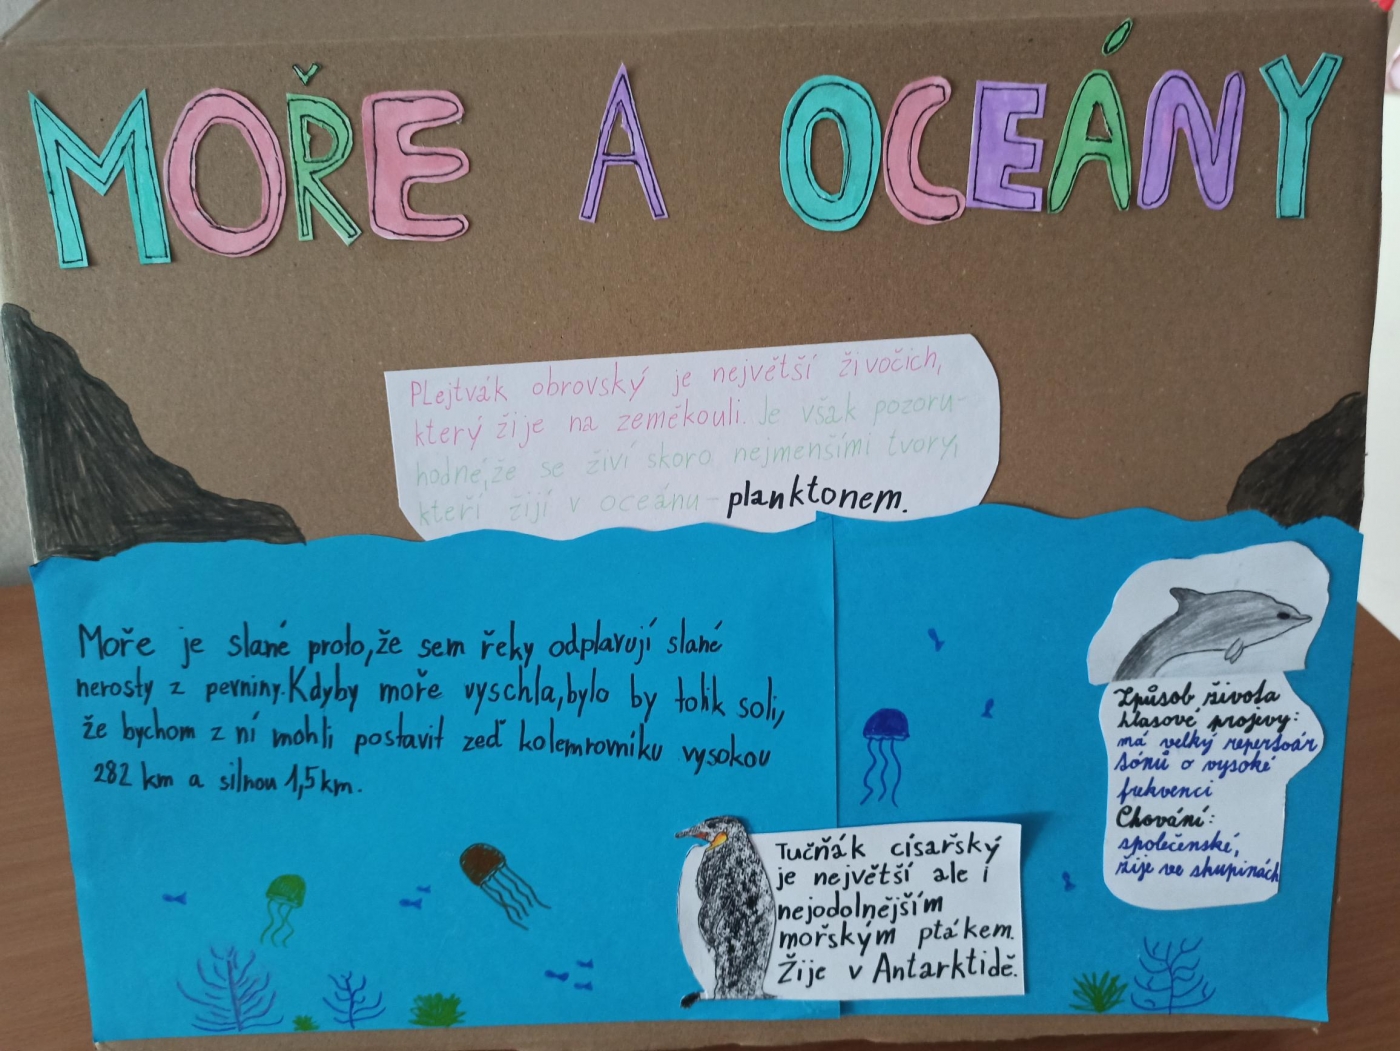 MOŘE A OCEÁNY
Plejtvák obrovský je největší živočich,
který žije na zeměkouli. Je však pozoru-
hodné, že se živí skoro nejmenšími tvory,
kteří žijí v oceánu - planktonem.
Moře je slané proto, že sem řeky odplavují slané
nerosty z pevniny. Kdyby moře vyschla, bylo by tolik soli,
že bychom z ní mohli postavit zeď kolemrovníku vysokou
282 km a silnou 1,5 km.
Způsob života
hlasové projevy:
má velký repertoár
sónů o vysoké
frekvenci
Chování:
společenské,
žije ve skupinách
Tučňák císařský
je největší ale i
nejodolnějším
mořským ptákem.
Žije v Antarktidě.